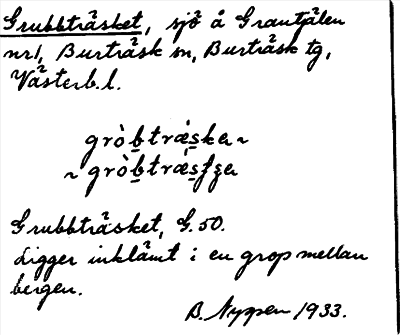 Grubbträsket, sjö å Grantjälen
nr1, Burträsk sn, Burträsk tg,
Västerb. l.
gròb̲trǽs̲ka ~
~ gròb̲trǽs̲ʃʒa
Grubbträsket, G. 50.
Ligger inklämt i en grop mellan
bergen.
B. Nygren 1933.